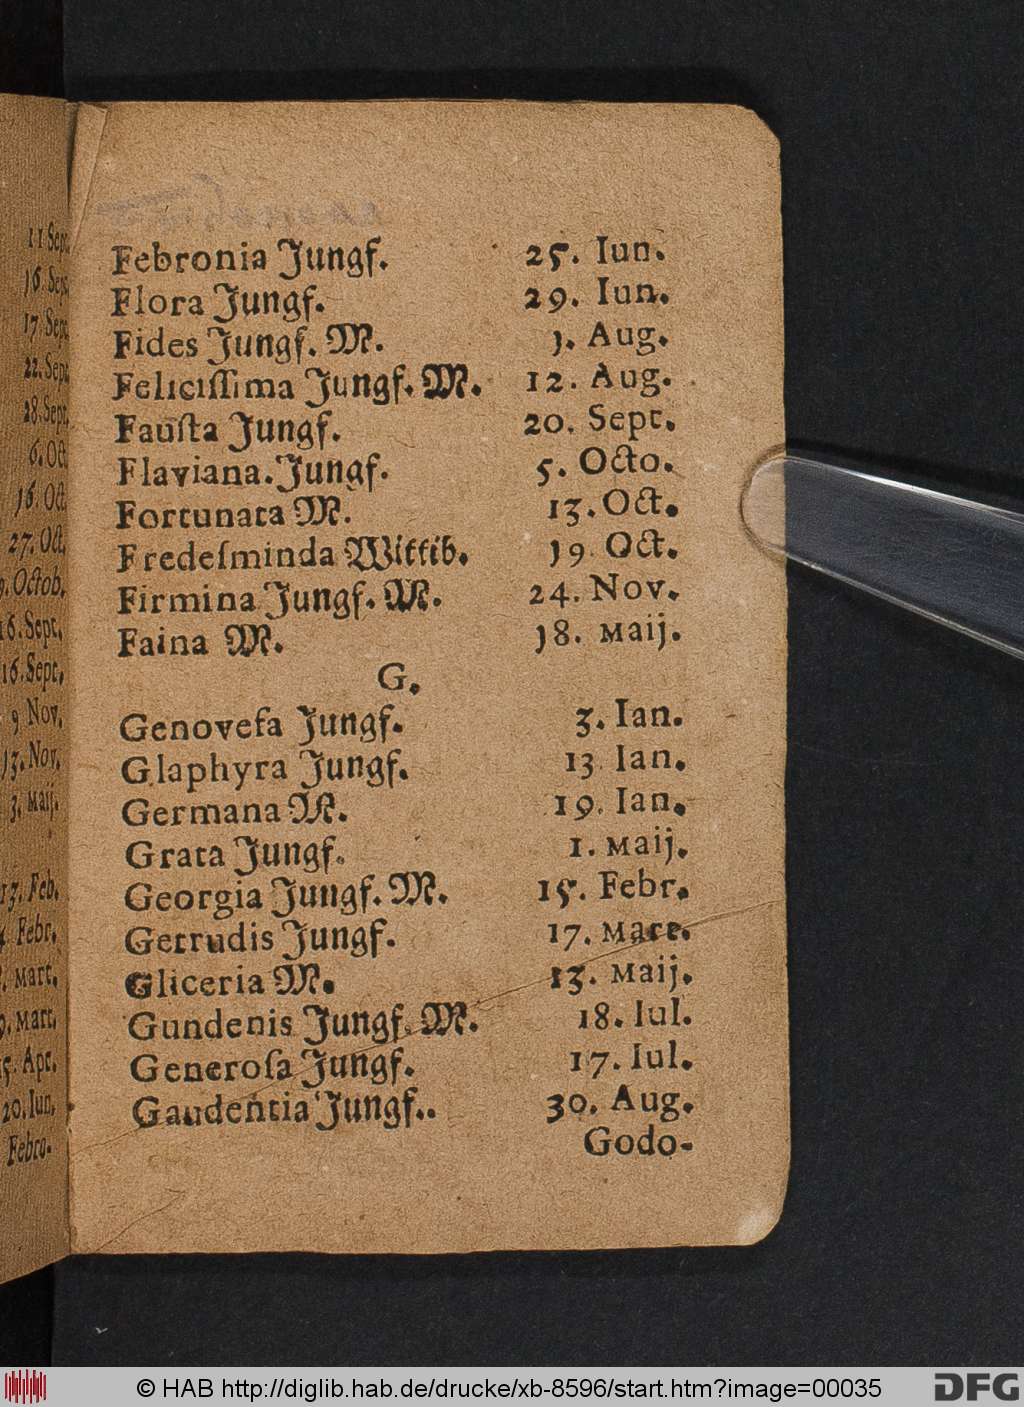 11 Sept.
16. Sept.
17. Sept.
22. Sept.
28. Sept.
6. Oct
16. Oct.
27. Oct.
9. Octob.
16. Sept.
16. Sept.
9 Nov.
13. Nov.
3. Maij.
13. Feb.
Febr.
Mart.
Mart.
Apr.
20. Iun.
Febro-
Febronia Jungf. 25. Iun.
Flora Jungf. 29. Iun.
Fides Jungf. M. 1. Aug.
Feliciſſima Jungf. M. 12. Aug.
Fauſta Jungf. 20. Sept.
Flaviana. Jungf. 5. Octo.
Fortunata M. 13. Oct.
Fredeſminda Wittib. 19 Oct.
Firmina Jungf. M. 24. Nov.
Faina M. 18. Maij.
G.
Genovefa Jungf. 3. Ian.
Glaphyra Jungf. 13 Ian.
Germana M. 19. Ian.
Grata Jungf. 1. Maij.
Georgia Jungf. M. 15. Febr.
Getrudis Jungf. 17. Mart.
Gliceria M. 13. Maij.
Gundenis Jungf. M. 18. Iul.
Generoſa Jungf. 17. Iul.
Gaudentia Jungf.. 30. Aug.
Godo-
© HAB http://diglib.hab.de/drucke/xb-8596/start.htm?image=00035
DFG